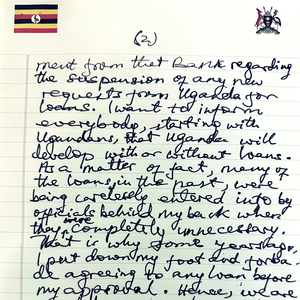 (2)
ment from that Bank regarding
the suspension of any new
requests from Uganda for
loans. I want to inform
everybody, starting with
Ugandans, that Uganda will
develop with or without loans.
As a matter of fact, many of
the loans, in the past, were
being carelessly entered into by
officials behind my back where
they were completely unnecessary.
That is why some years ago,
I put down my foot and forba-
de agreeing to any loan before
my approval. Hence, we are